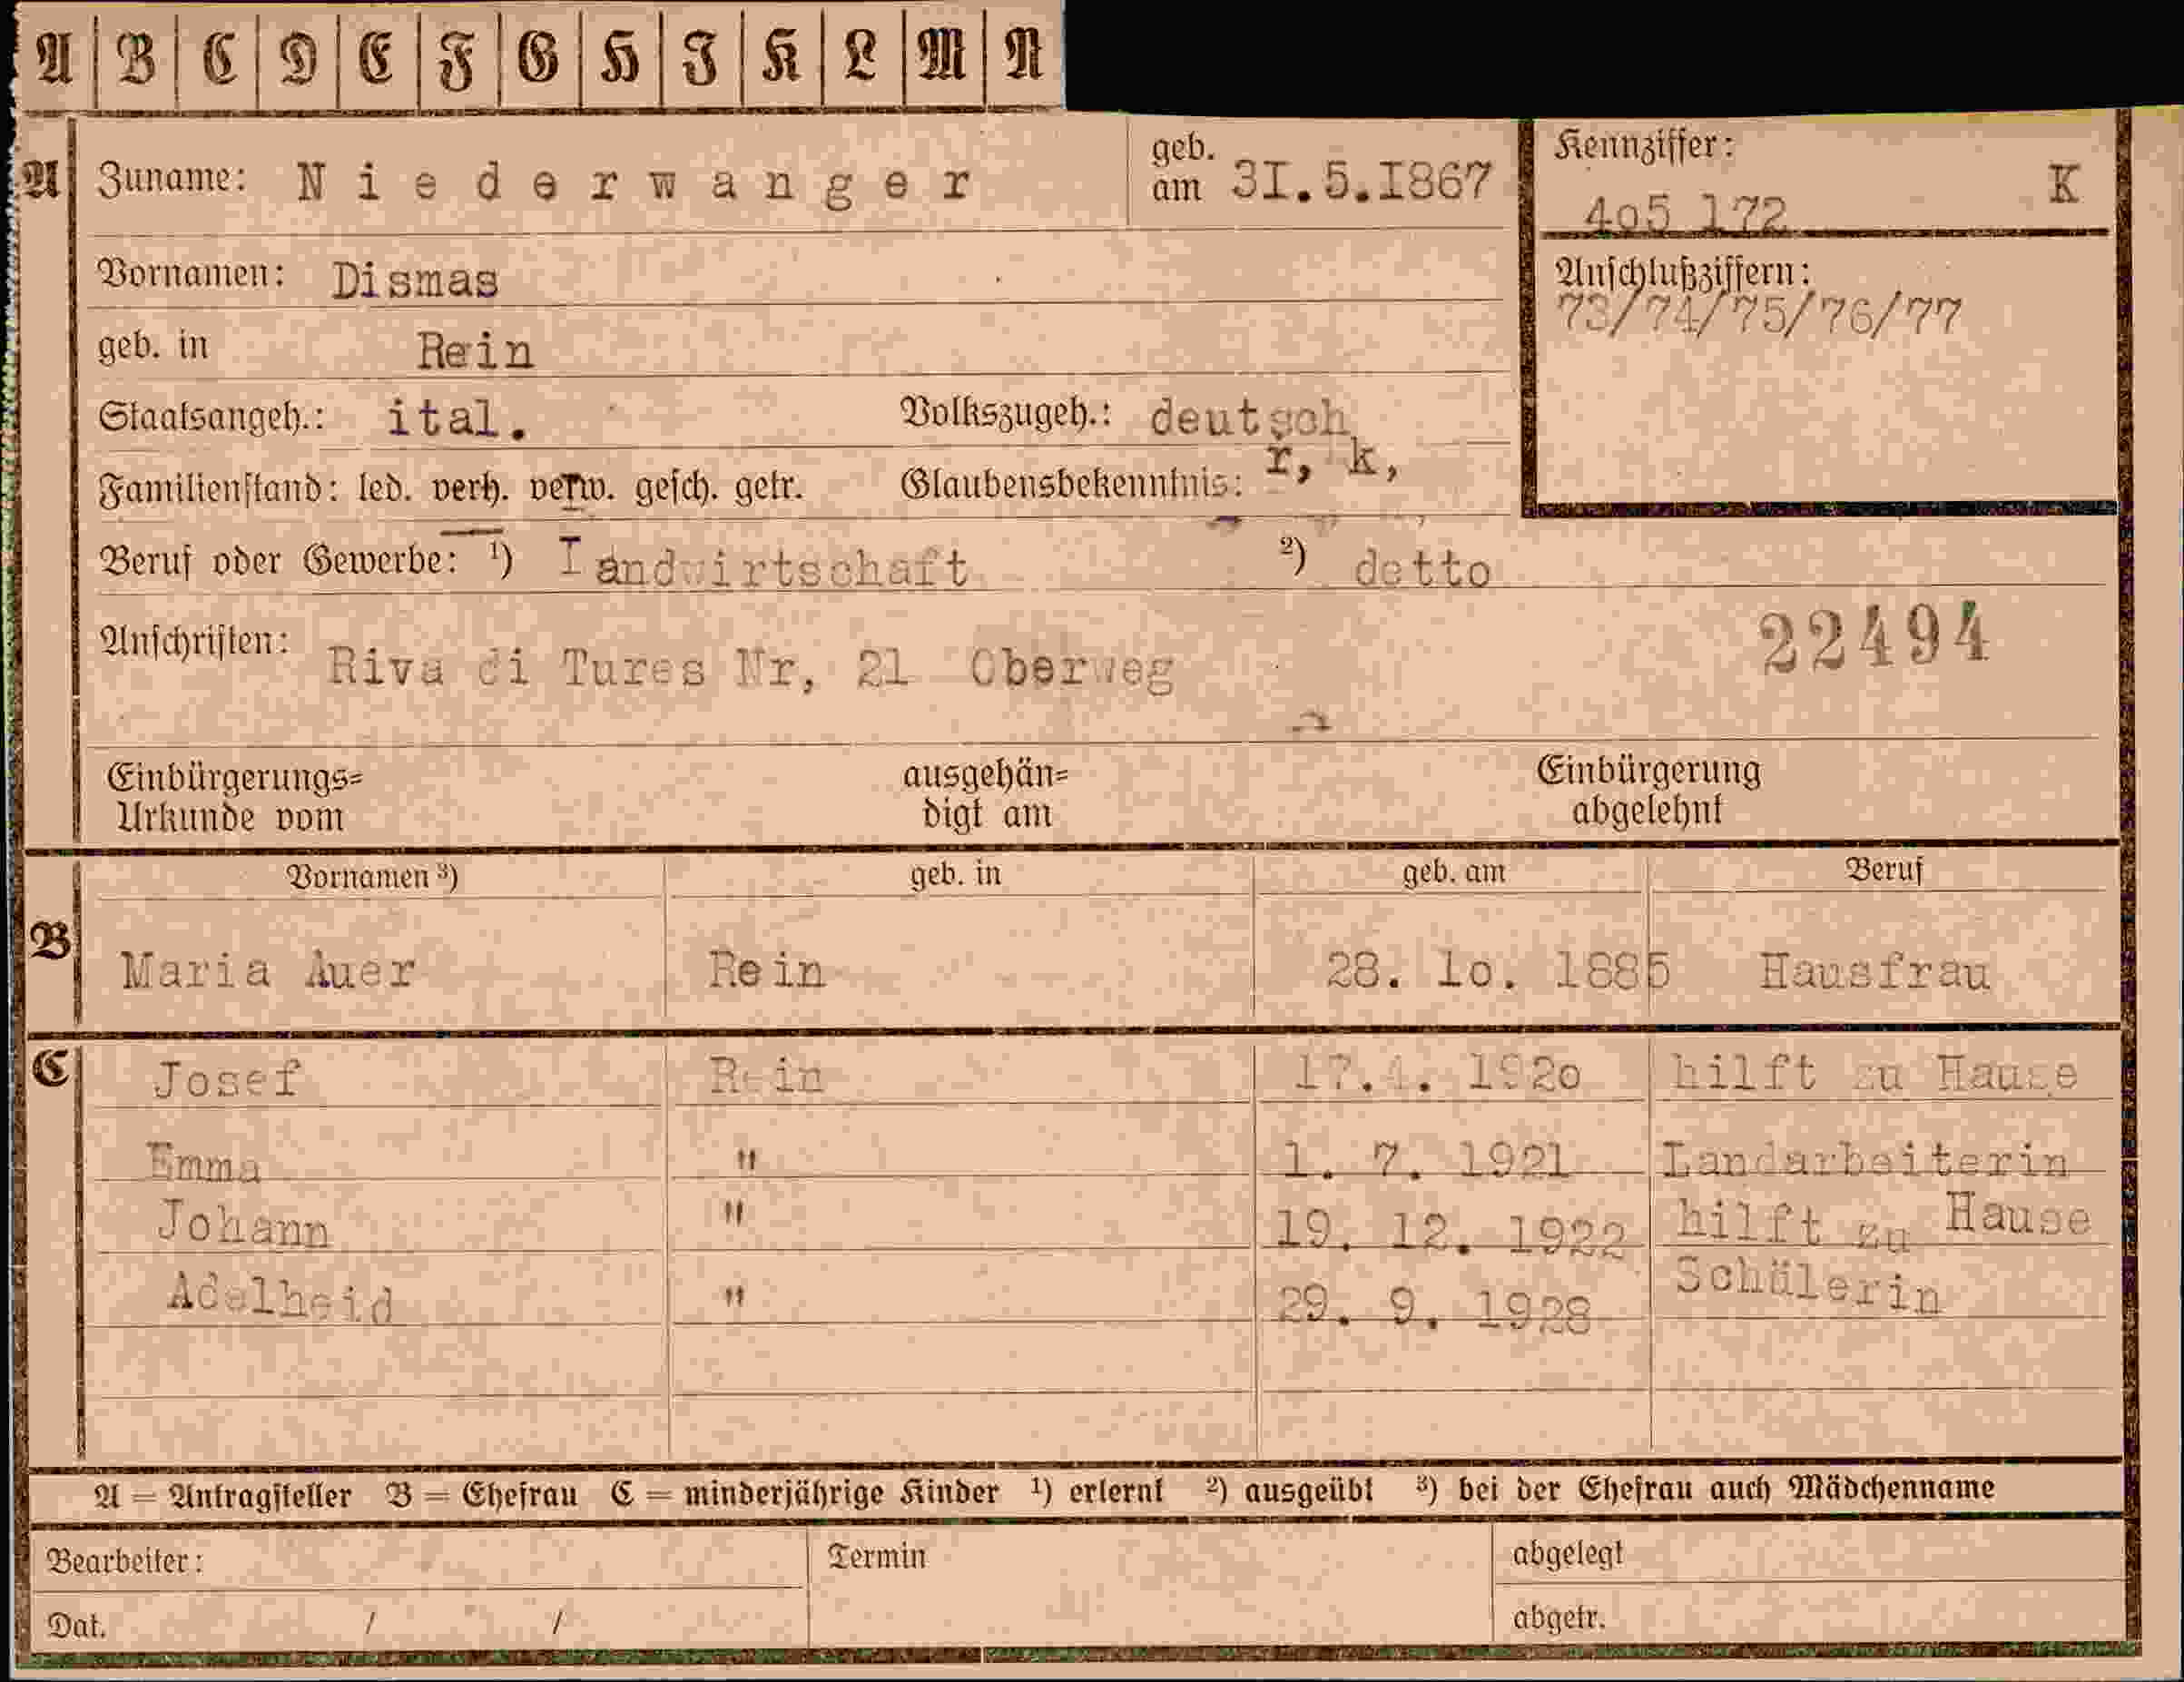 A B C D E F G H I K L M N
A Zuname: Niederwanger geb. am 3I.5.I867 Kennziffer: 4o5 172 K
Vornamen: Dismas Anschlußziffern: 73/74/75/76/77
geb. in Rein
Staatsangeh.: ital. Volkszugeh.: deutsch
Familienstand: led. verh. verw. gesch. getr. Glaubensbekenntnis: r, k,
Beruf oder Gewerbe: ¹) Landwirtschaft ²) detto
Anschriften: Riva di Tures Nr, 21 Oberweg 22494
Einbürgerungs= ausgehän= Einbürgerung
Urkunde vom digt am abgelehnt
Vornamen ³) geb. in geb. am Beruf
B Maria Auer Rein 28. 1o. 1885 Hausfrau
C Josef Rein 17.4. 192o hilft zu Hause
Emma " 1. 7. 1921 Landarbeiterin
Johann " 19. 12. 1922 hilft zu Hause
Adelheid " 29. 9. 1928 Schülerin
A = Antragsteller B = Ehefrau C = minderjährige Kinder ¹) erlernt ²) ausgeübt ³) bei der Ehefrau auch Mädchenname
Bearbeiter: Termin abgelegt
Dat. / / abgetr.